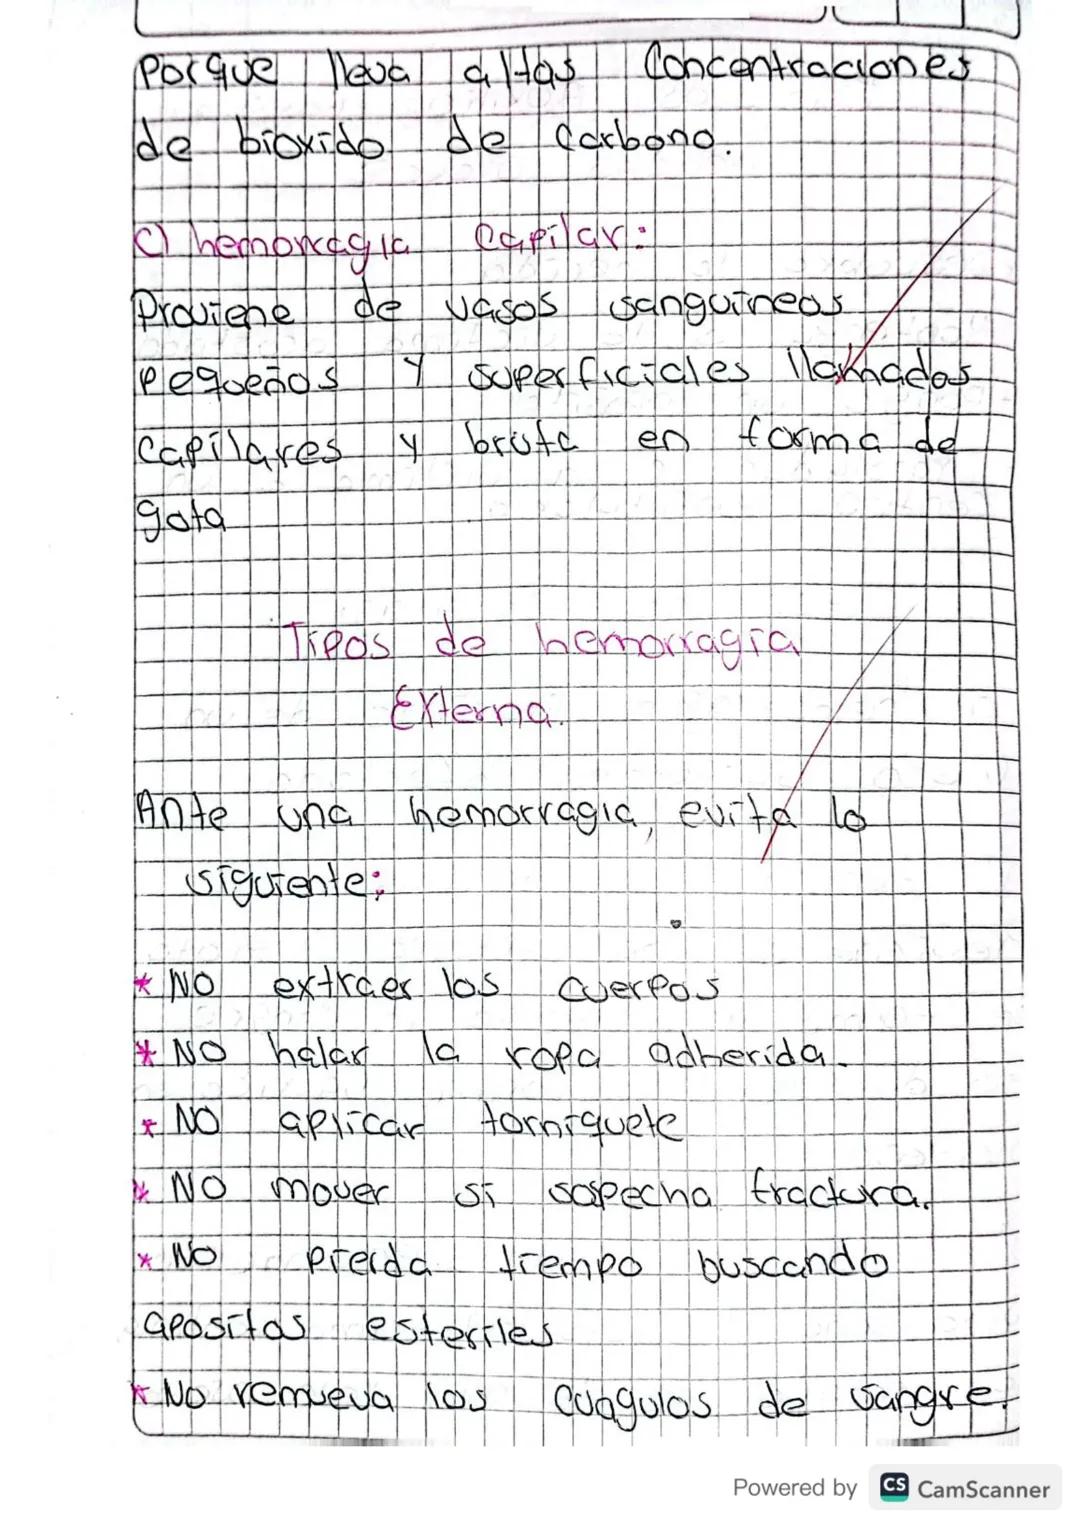 Porque lleva altas Concentraciones
de bioxido de Carbono.
C) hemorragia Capilar:
Proviene de vasos sanguineos
Pequeños y superficiales llamados
Capilares y brota en forma de
gota
Tipos de hemorragia
Externa.
Ante una hemorragia, evita lo
siguiente:
* NO extraer los cuerpos
* NO halar la ropa adherida.
* NO aplicar torniquete
* NO mover si sospecha fractura.
* NO pierda tiempo buscando
apositos esteriles
* No remueva los cuagulos de sangre.
Powered by CS CamScanner